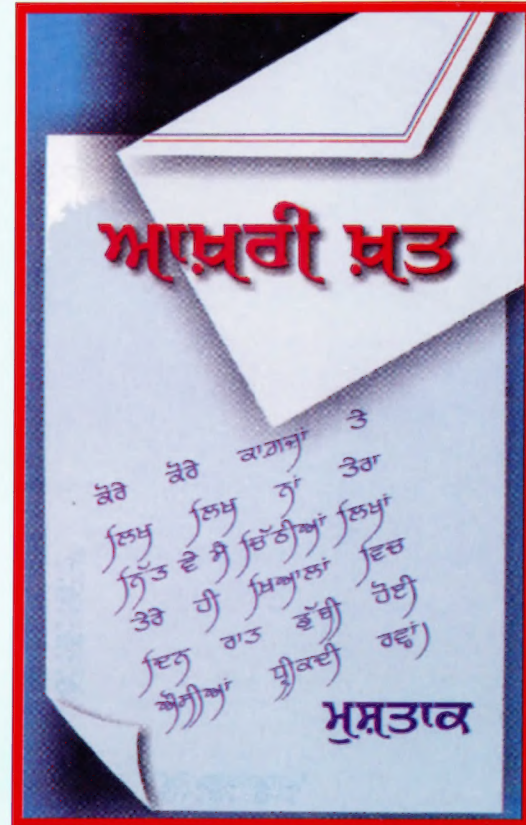 ਆਖ਼ਰੀ ਖ਼ਤ
ਕੋਰੇ ਕੋਰੇ ਕਾਗਜ਼ਾਂ ਤੇ
ਲਿਖ ਲਿਖ ਨਾਂ ਤੇਰਾ
ਨਿੱਤ ਵੇ ਮੈਂ ਚਿੱਠੀਆਂ ਲਿਖਾਂ
ਤੇਰੇ ਹੀ ਖਿਆਲਾਂ ਵਿਚ
ਦਿਨ ਰਾਤ ਡੁੱਬੀ ਹੋਈ
ਔਸੀਆਂ ਧ੍ਰੀਕਦੀ ਰਵ੍ਹਾਂ।
ਮੁਸ਼ਤਾਕ